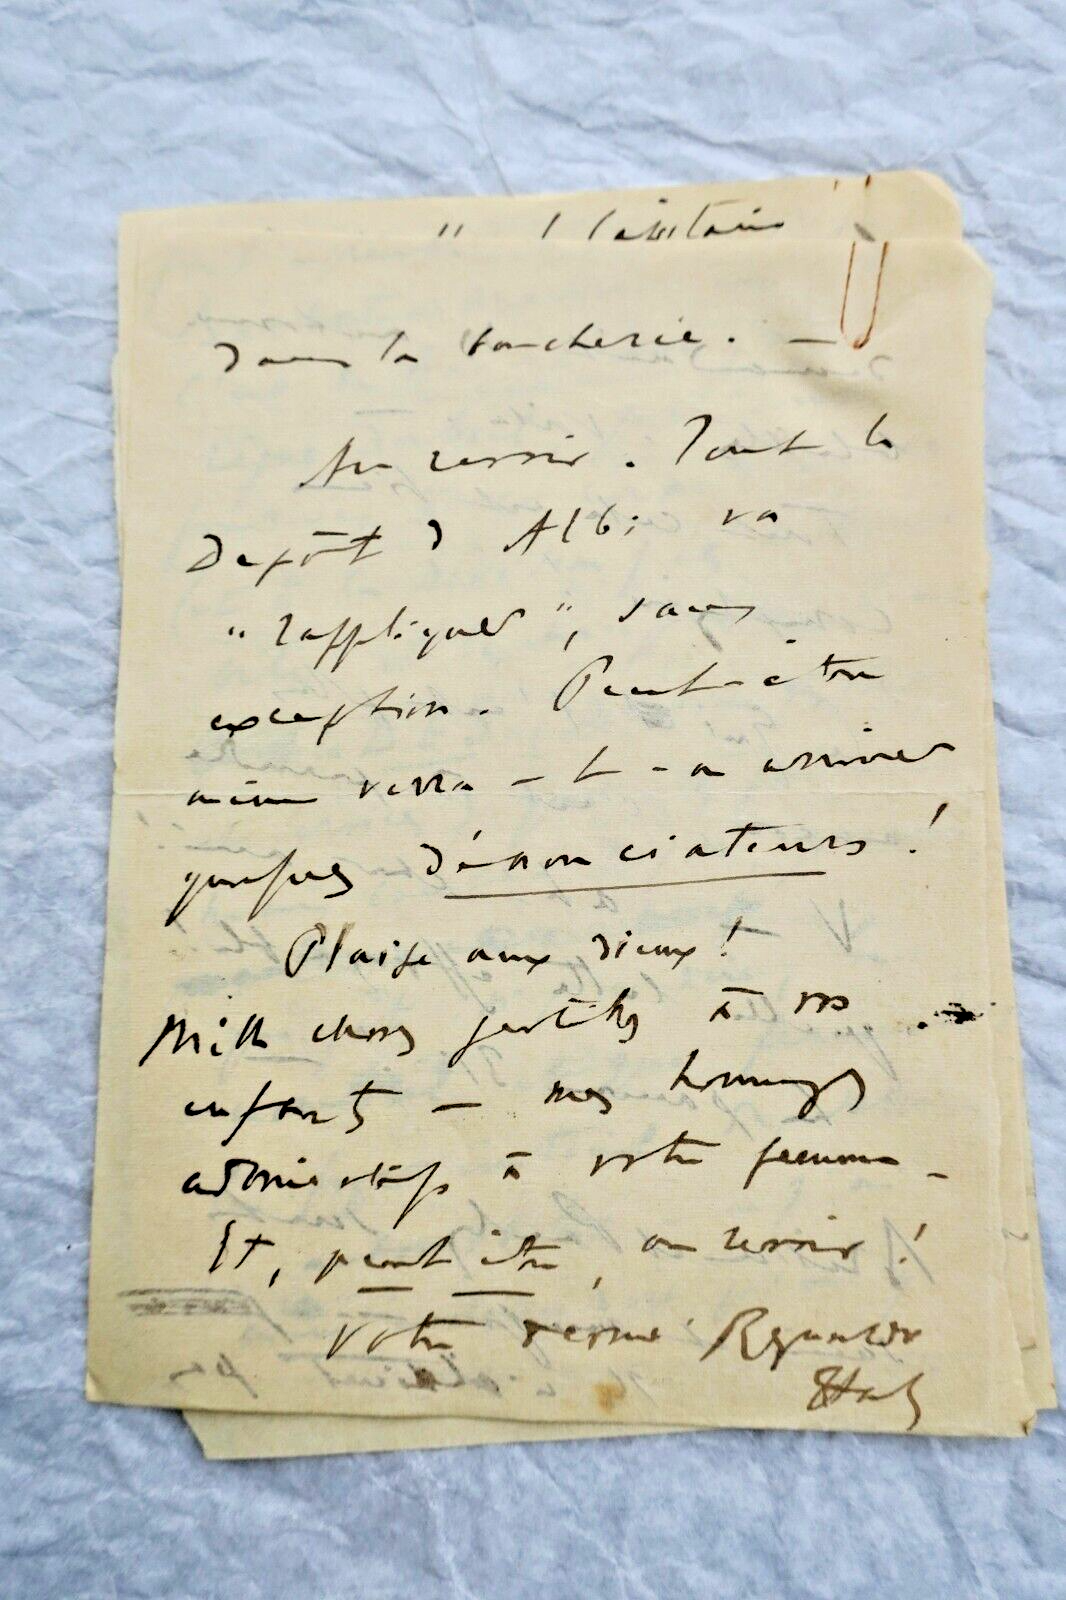 dans la boucherie. —
Au revoir. Tout le
Dépôt d'Albi va
"rappliquer", sans
exception. Peut-être
même verra-t-on arriver
quelques dénonciateurs !
Plaise aux dieux !
Mille choses gentilles à vos
enfants — mes hommages
admiratifs à votre femme —
Et, peut être, au revoir !
Votre Reynaldo
Hahn